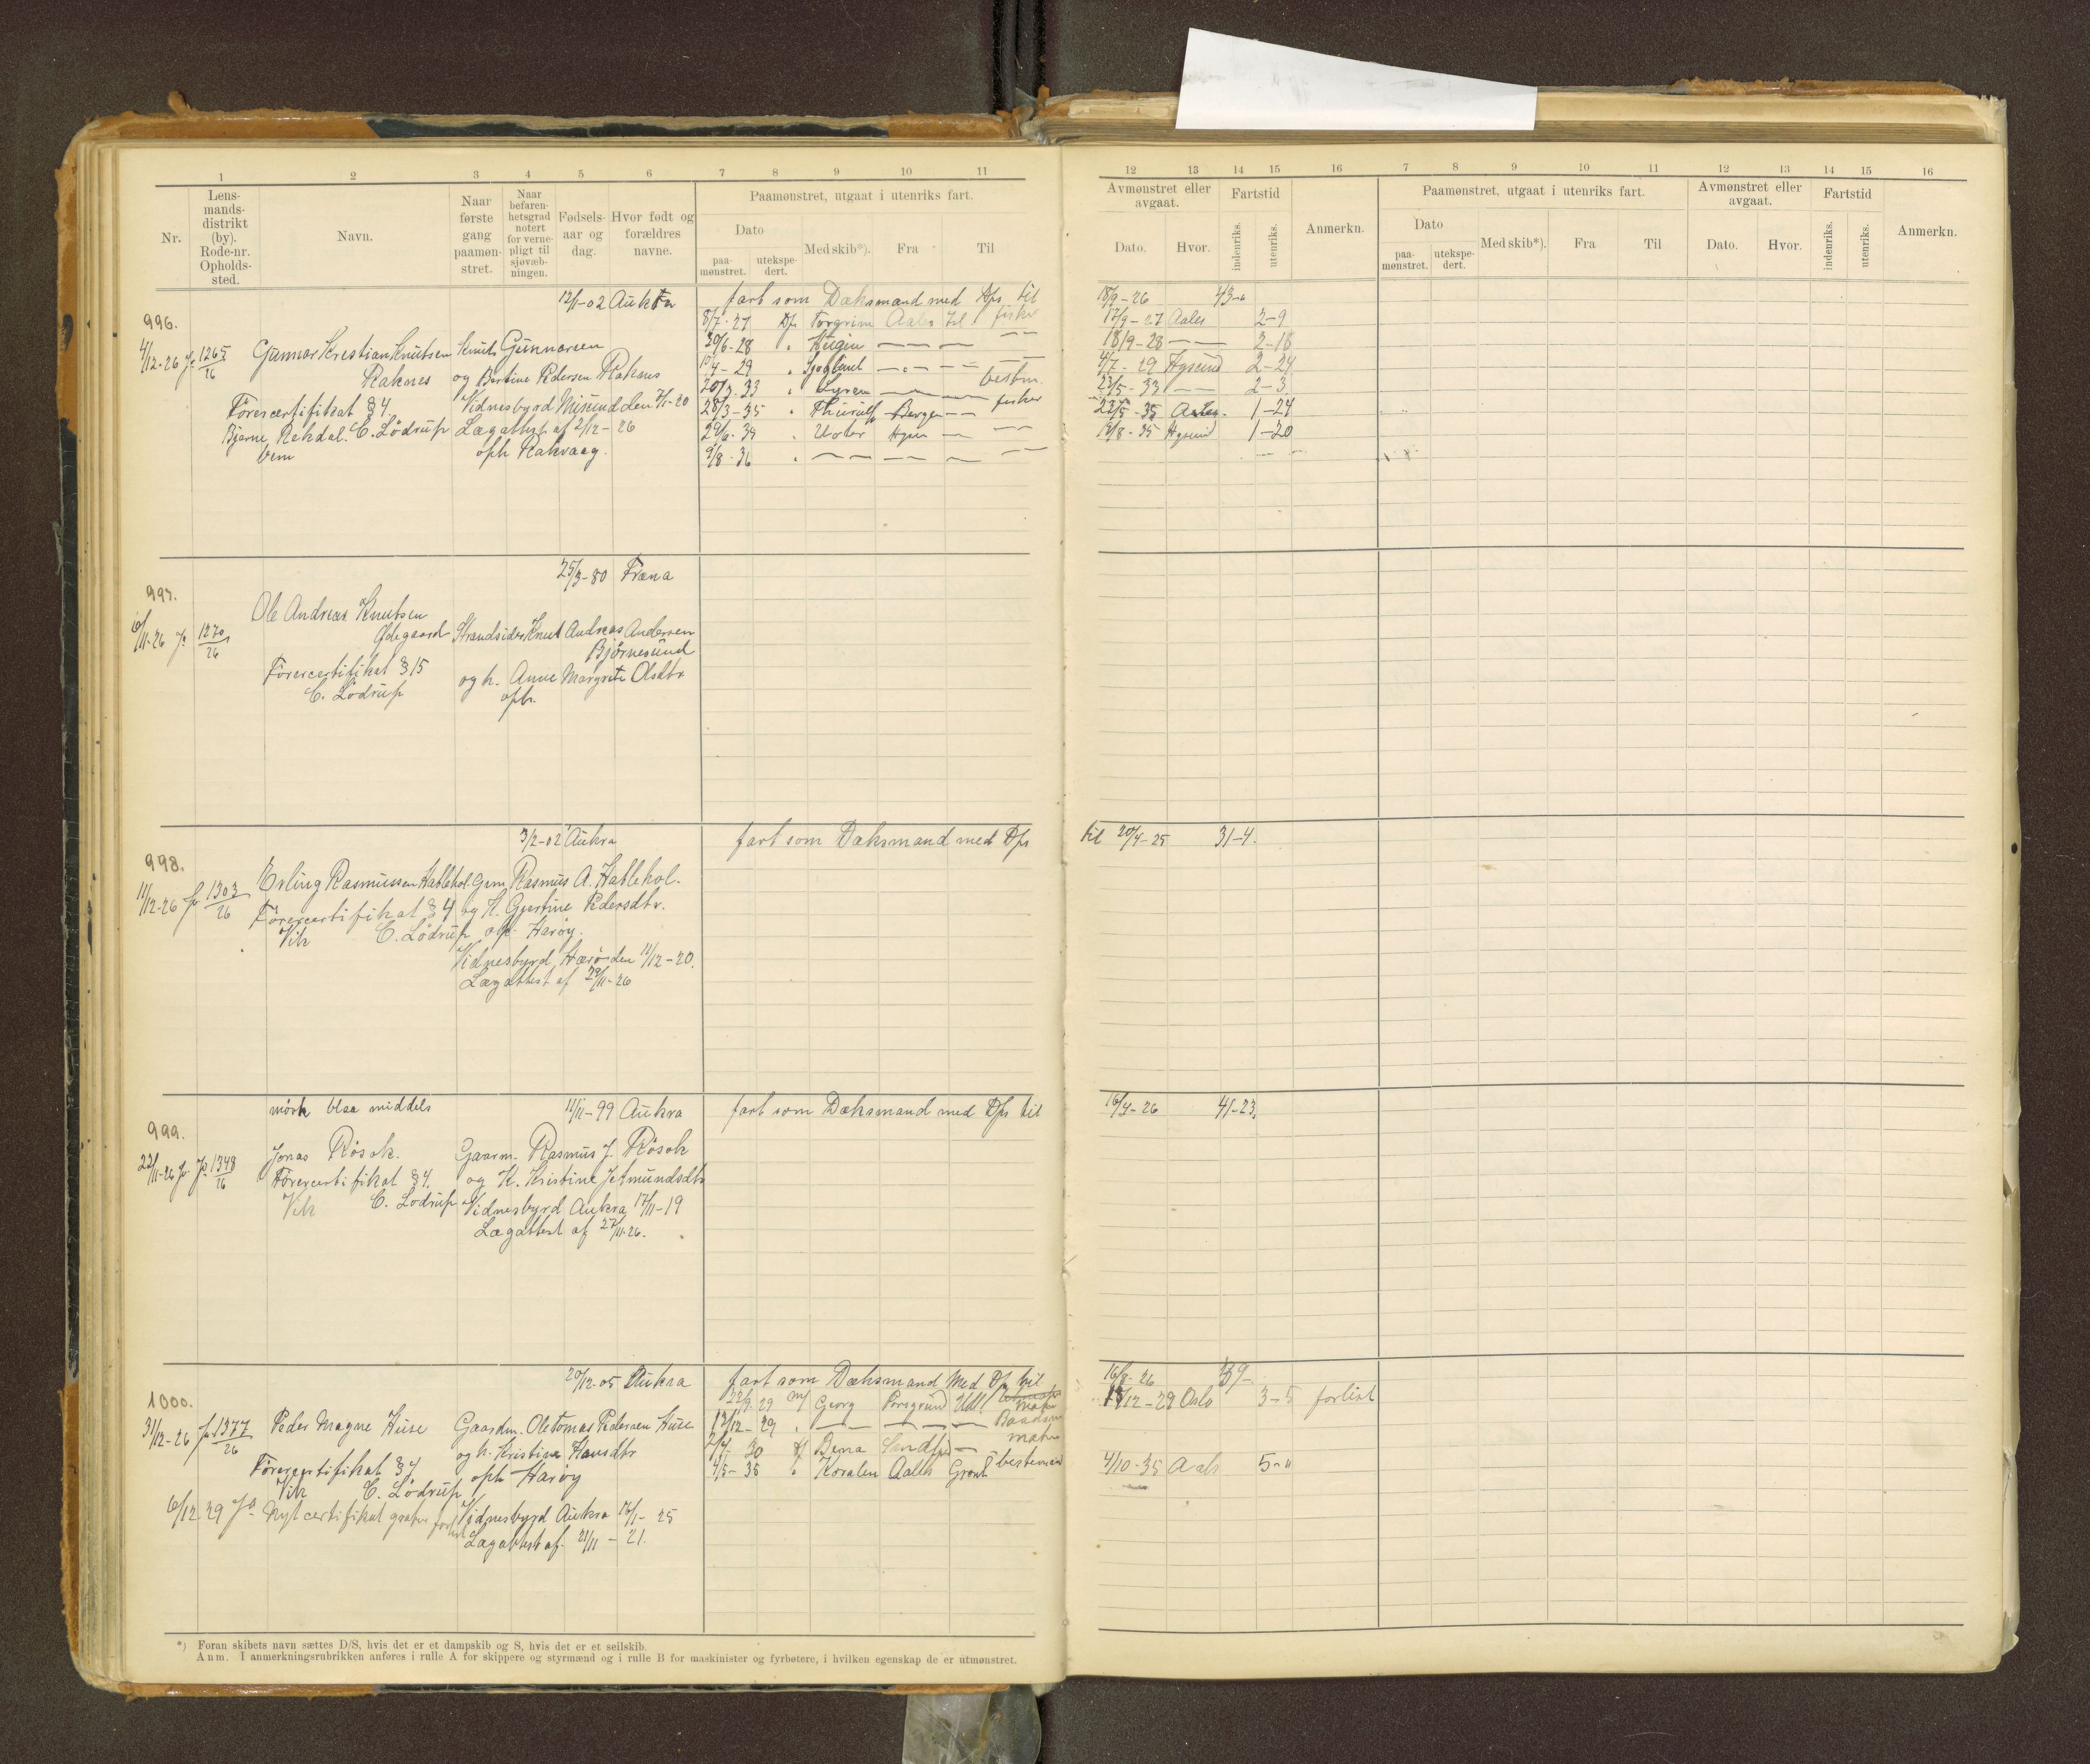 1 2 3 4 5 6 7 8 9 10 11
Nr.
Lens-
mands-
distrikt
(by).
Rode-nr.
Opholds-
sted.
Navn.
Naar
første
gang
paamøn-
stret.
Naar
befaren-
hetsgrad
notert
for verne-
pligt til
sjøvæb-
ningen.
Fødsels-
aar og
dag.
Hvor født og
forældres
navne.
Paamønstret, utgaat i utenriks fart.
Dato
paa-
mønstret.
utekspe-
dert.
Med skib*).
Fra
Til
12 13 14 15 16 7 8 9 10 11 12 13 14 15 16
Avmønstret eller
avgaat.
Dato.
Hvor.
Fartstid
indenriks.
utenriks.
Anmerkn.
Paamønstret, utgaat i utenriks fart.
Dato
paa-
mønstret.
utekspe-
dert.
Med skib*).
Fra
Til
Avmønstret eller
avgaat.
Dato.
Hvor.
Fartstid
indenriks.
utenriks.
Anmerkn.
12/1-02 Aukra fart som Dæksmand med D/s til 18/9-26
996.
8/7-27 D/s Torgrim Aales fisker 17/9-27 Aales 2-9
4/12-26 1265/26 Gunnar Kristian Knutsen Knut Gunnarsen
20/6-28 " Hugin — — — — 18/9-28 — — 2-18
Raknes og Bertine Pedersen Raknes
-29 " — — — — 4/7-29 2-24
33 " Syren — — bestm. 23/5-33 — — 2-3
Førercertifikat §4. Vidnesbyrd Misund den 7/1-20
28/3-35 " Bergen — fisker 23/5-35 1-24
Bjarne Rekdal. C. Lödrup Lægattest af 2/12-26
29/6-35 " — — /8-35 1-20
Vem oph Rakvaag.
9/8-36 " — — — —
25/3-80 Fræna
997.
Ole Andreas Knutsen
6/11-26 1270/26 Ødegaard Strandsider Knut Andreas Andersen
Björnesund
Förercertifikat §15 og h. Anne Margrete Olsdtr
C. Lödrup oph.
3/2-02 Aukra fart som Dæksmand med D/s til 20/4-25 31-4.
998.
11/12-26 1303/26 Erling Rasmussen Hablehol. Gm. Rasmus A. Hablehol.
Förercertifikat §4 og K. Gjertine Pedersdtr.
Vik C. Lödrup oph Harøy.
Vidnesbyrd Harø den 11/12-20.
Lægattest af 29/11-26
mörk blaa middels 11/11-99 Aukra fart som Dæksmand med D/s til 16/4-26 41-23.
999.
1348/26 Jonas Rösok. Gaarm. Rasmus J. Rösok
Förercertifikat §4. og K. Kristine Jetmundsdtr
Vik C. Lodrup Vidnesbyrd Aukra 17/11-19
Lægattest af 27/11-26.
20/12-05 Aukra fart som Dæksmand Med D/s til 16/8-26
1000.
-29 m/ Georg Porsgrund Udl. matr /12-29 Oslo 3-5 forlist
31/12-26 1377/26 Peder Magne Huse Gaardm. Ole Tomas Pedersen Huse
12/12-29 " — — — — Baadsm
og h. Kristine Hansdtr
30 Bema — matr
Förercertifikat §4 oph Harøy
4/5-35 " Koralen Aales Grønl bestemand 4/10-35 Aales 5-"
Vik C. Lödrup
6/12 29 Nyt certifikat gratis forlist Vidnesbyrd Aukra 18/1-25
Lægattest af 21/11-21.
*) Foran skibets navn sættes D/S, hvis det er et dampskib og S, hvis det er et seilskib.
Anm. I anmerkningsrubrikken anføres i rulle A for skippere og styrmænd og i rulle B for maskinister og fyrbøtere, i hvilken egenskap de er utmønstret.